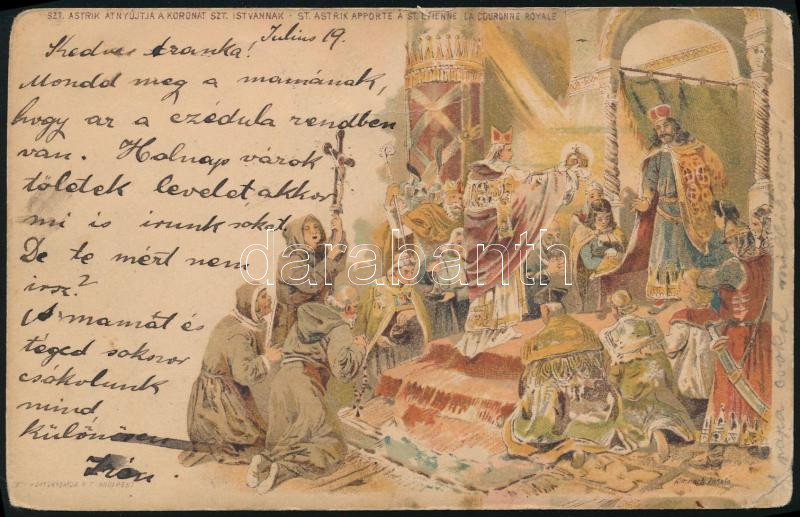 SZT. ASTRIK ÁTNYÚJTJA A KORONÁT SZT. ISTVÁNNAK - ST. ASTRIK APPORTE À ST. ETIENNE LA COURONNE ROYALE
Julius 19.
Kedves Aranka!
Mondd meg a mamának,
hogy az a czédula rendben
van. Holnap várok
tőletek levelet akkor
mi is irunk sokat.
De te mért nem
irsz?
A mamát és
téged sokszor
csókolunk
mind,
különösen
Irén.
darabanth